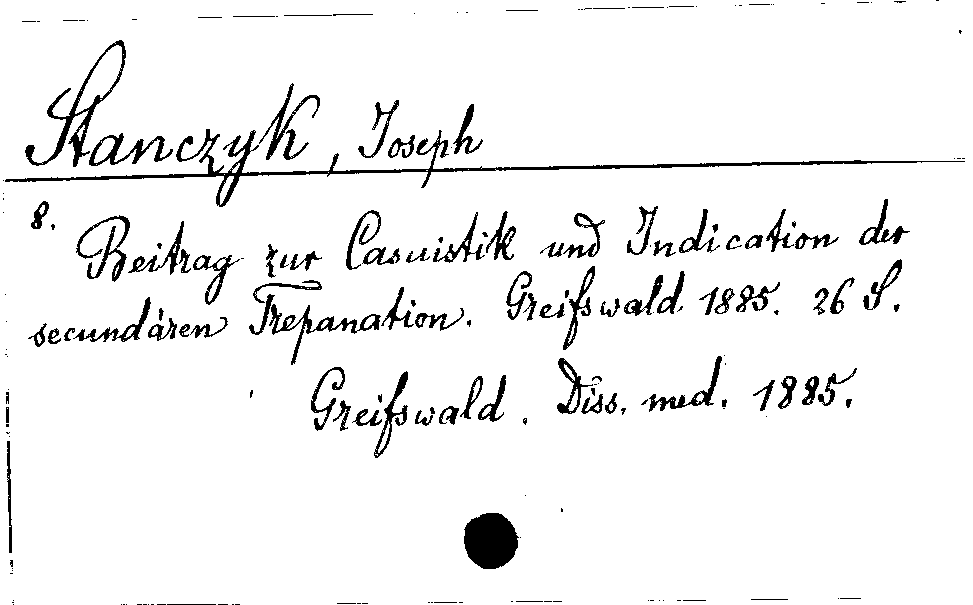 Stanczyk, Joseph
8.
Beitrag zur Casuistik und Indication der
secundären Trepanation. Greifswald 1885. 26 S.
Greifswald. Diss. med. 1885.